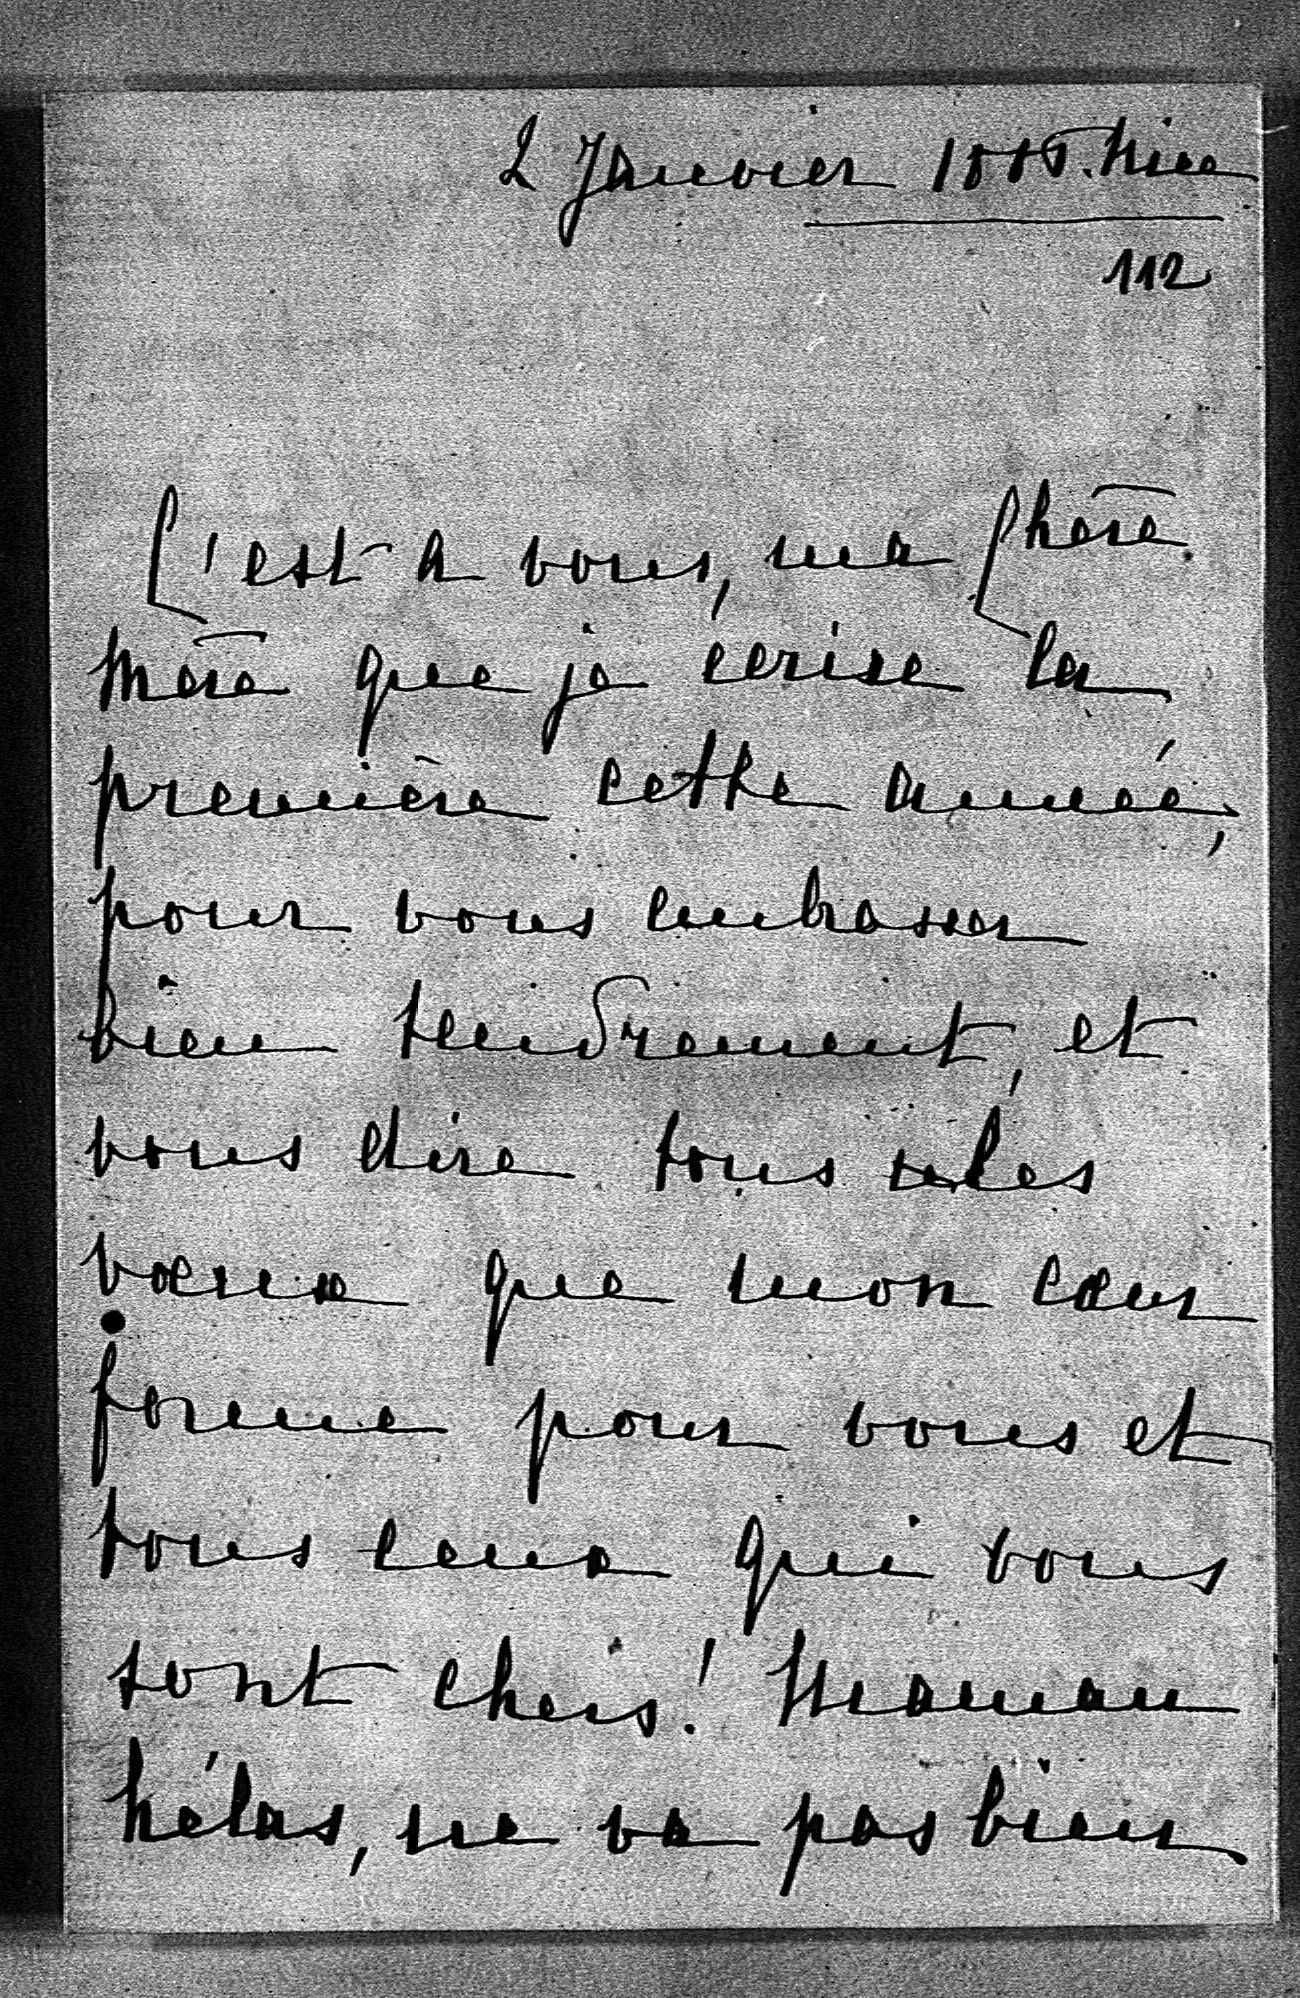 2 Janvier 1885. Nice
112
C'est à vous, ma Chère
Mère que je écrise la
première cette année,
pour vous embrasser
bien tendrement, et
vous dire tous les
voeux que mon coeur
forme pour vous et
tous ceux qui vous
sont chers! Maman
hélas, ne va pas bien